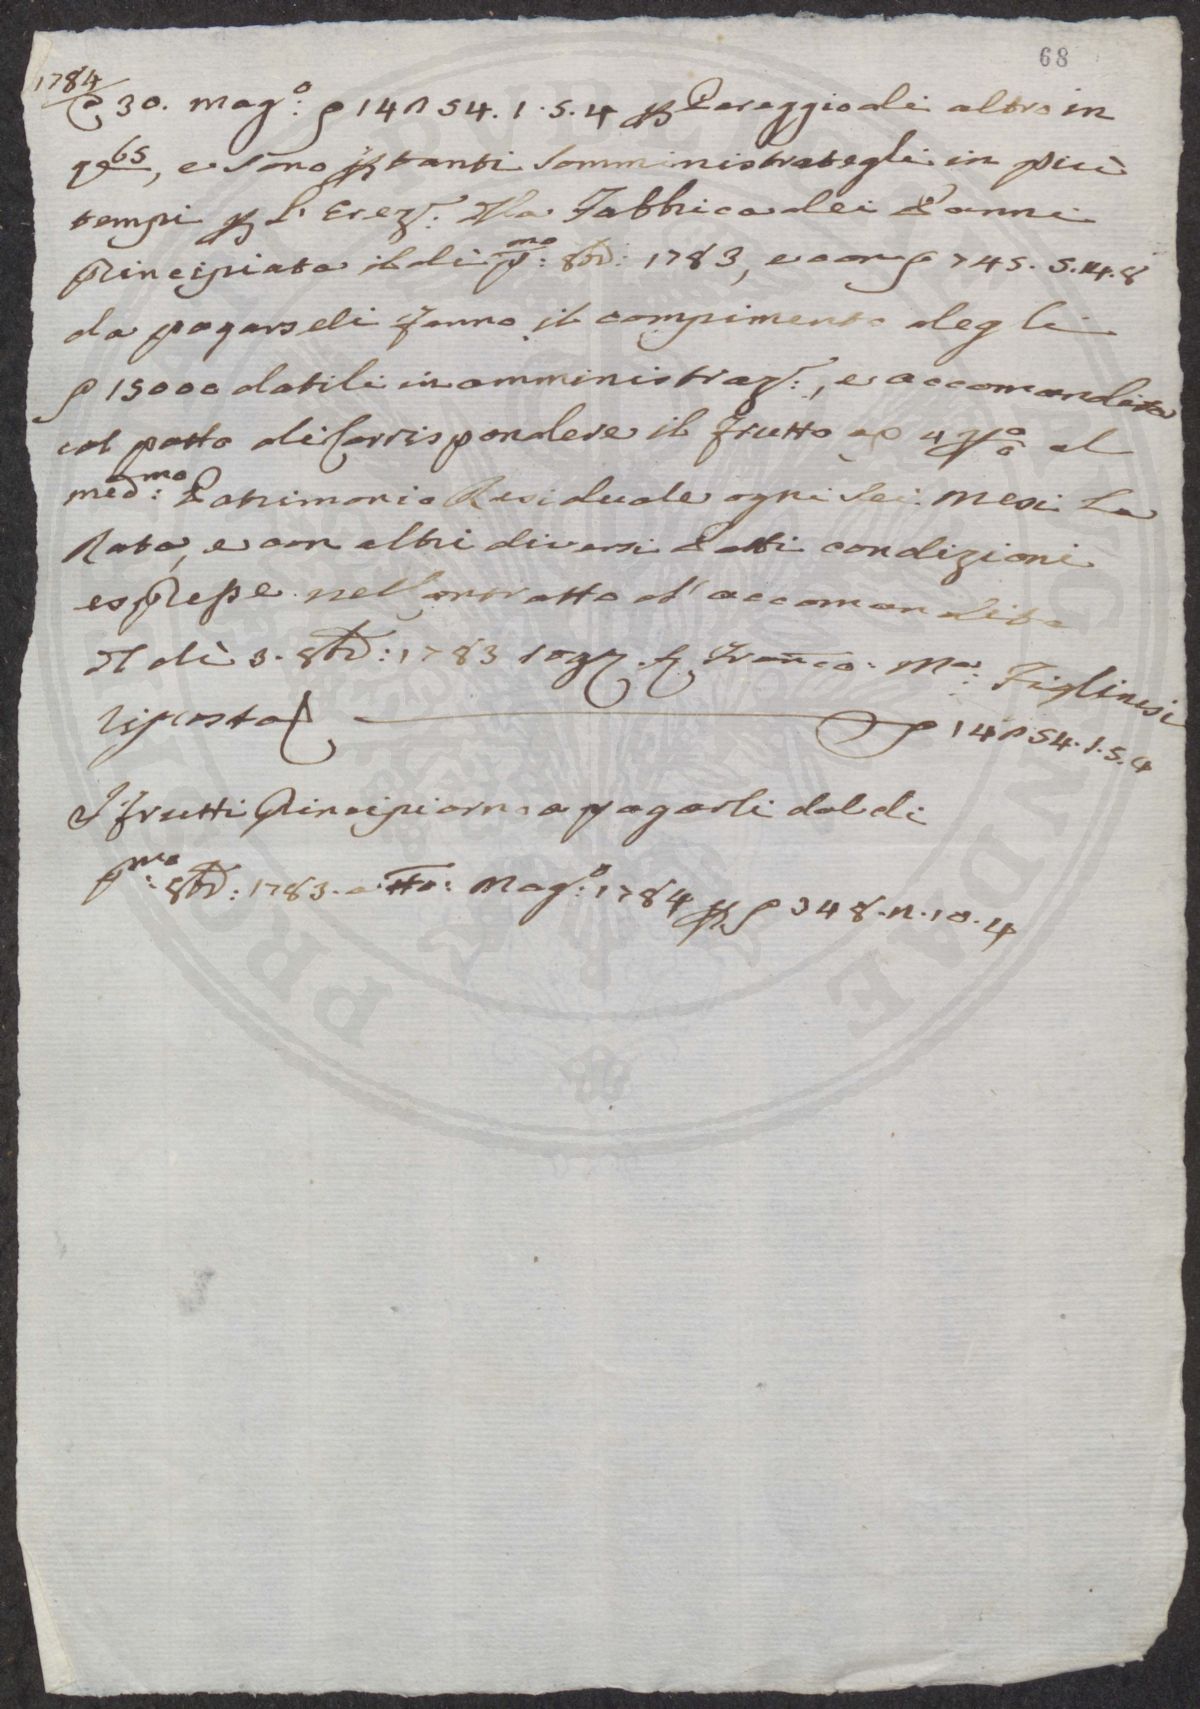 68
1784
E 30. Mag.o: P 14254. 1. 5. 4 P Pareggio di altro in
q.65, e sono P tanti Somministratigli in più
tempi P l'Erez.: Dlla Fabbrica dei Panni
principiata il di p.mo: 8bre: 1783, e con P 745. 5. 14. 8
da pagarseli fanno il compimento degli
P 15000 datili in amministraz.:, e accomandita
col patto di Corrispondere il frutto a 4 P% al
med.mo: Patrimonio Residuale ogni Sei Mesi La
Rata, e con altri diversi Patti condizioni
espresse nell Contratto d'accomandita
Dl dì 3. 8bre: 1783 rog. Franco: Ma: Figlinesi
riposta P 14254. 1. 5. 4
I frutti Principiorno a pagarli dal di
p.mo: 8bre: 1783. a tto: Mag.o: 1784 P P 348. 2. 10. 4